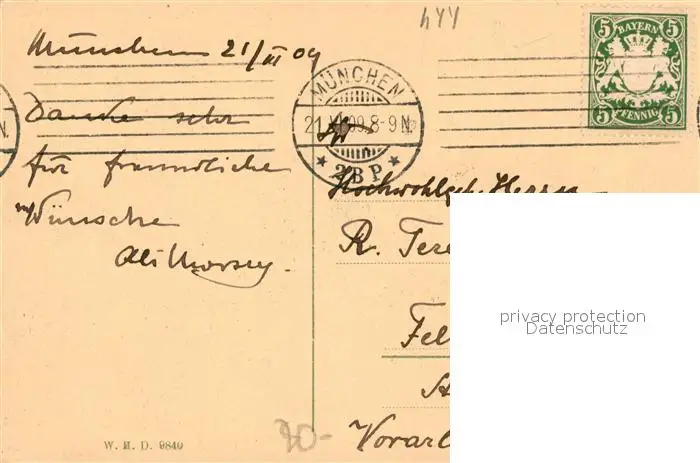 München 21/III 09
Danke sehr
für freundliche
Wünsche
W. M. D. 9840
444
MÜNCHEN
09.8-9N.
2 B P
BAYERN
5 5
5 5
PFENNIG
Hochwohlgeb. Herrn
R.
Fel
Vorarl
20-
privacy protection
Datenschutz